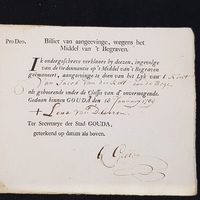 Pro Deo.
Billiet van aangeevinge, wegens het
Middel van 't Begraven.
Ik ondergeschreve verklaare by deezen, ingevolge
van de Ordonnantie op 't Middel van 't Begraven
geëmaneert, aangeevinge te doen van het Lyk van
Jan Jacob van der
als gehoorende onder de Classis van d' onvermogende.
Gedaan binnen GOUDA den 16 January
Ter Secretarye der Stad GOUDA,
geteekend op datum als boven.